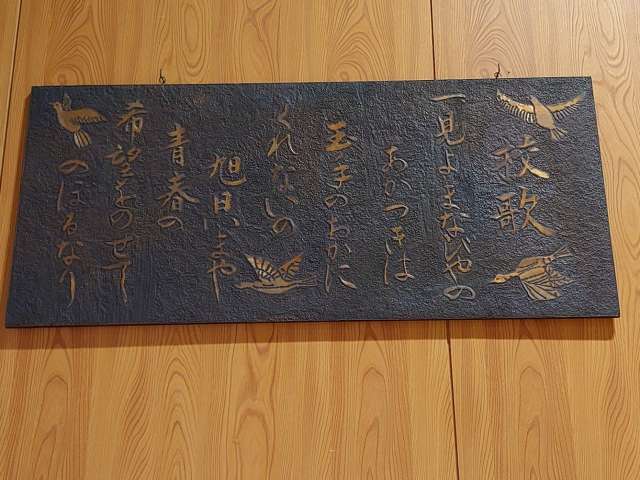 校歌
一 見よまなびやの
あかつきは
玉手のおかに
くれないの
旭日いまや
青春の
希望をのせて
のぼるなり